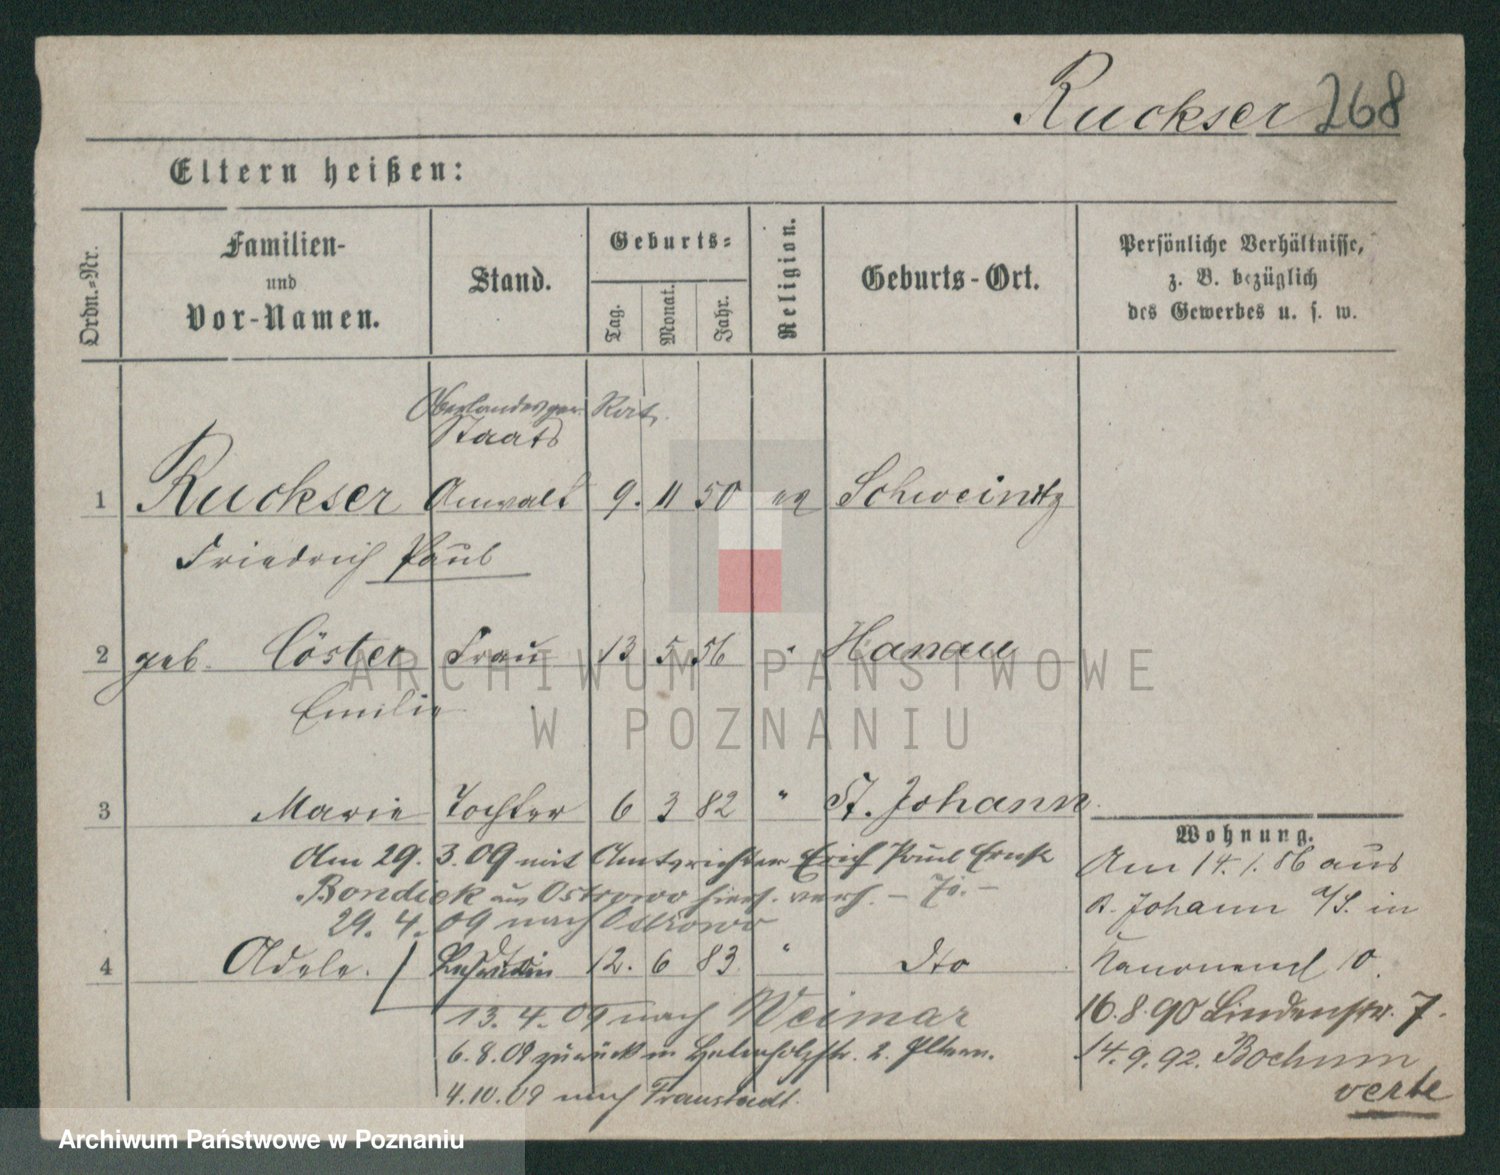 Ruckser 268
Eltern heißen:
Ordn.-Nr.
Familien-
und
Vor-Namen.
Stand.
Geburts-
Tag.
Monat.
Jahr.
Religion.
Geburts-Ort.
Persönliche Verhältnisse,
z. B. bezüglich
des Gewerbes u. s. w.
Oberlandesger. Rat.
Staats
1 Ruckser Anwalt 9. 11 50 ev Schweinitz
Friedrich Paul
2 geb. Cöster Frau 13 5 56 " Hanau
Emilie
3 Marie Tochter 6 3 82 " St. Johann
Am 29. 3. 09 mit Amtsrichter Erich Paul Ernst
Bondick aus Ostrowo hier verh.
29. 4. 09 nach Ostrowo
4 Adele. dto 12. 6 83 " dto
13. 4. 09 nach Weimar
6. 8. 09 zurück n Helmholzstr. 2. Eltern.
4. 10. 09 nach Fraustadt.
Wohnung.
Am 14. 1. 86 aus
St. Johann a/S. in
Kanonenpl 10.
16. 8. 90 Lindenstr. 7.
14. 9. 92. Bochum
verte
ARCHIWUM PAŃSTWOWE
W POZNANIU
Archiwum Państwowe w Poznaniu